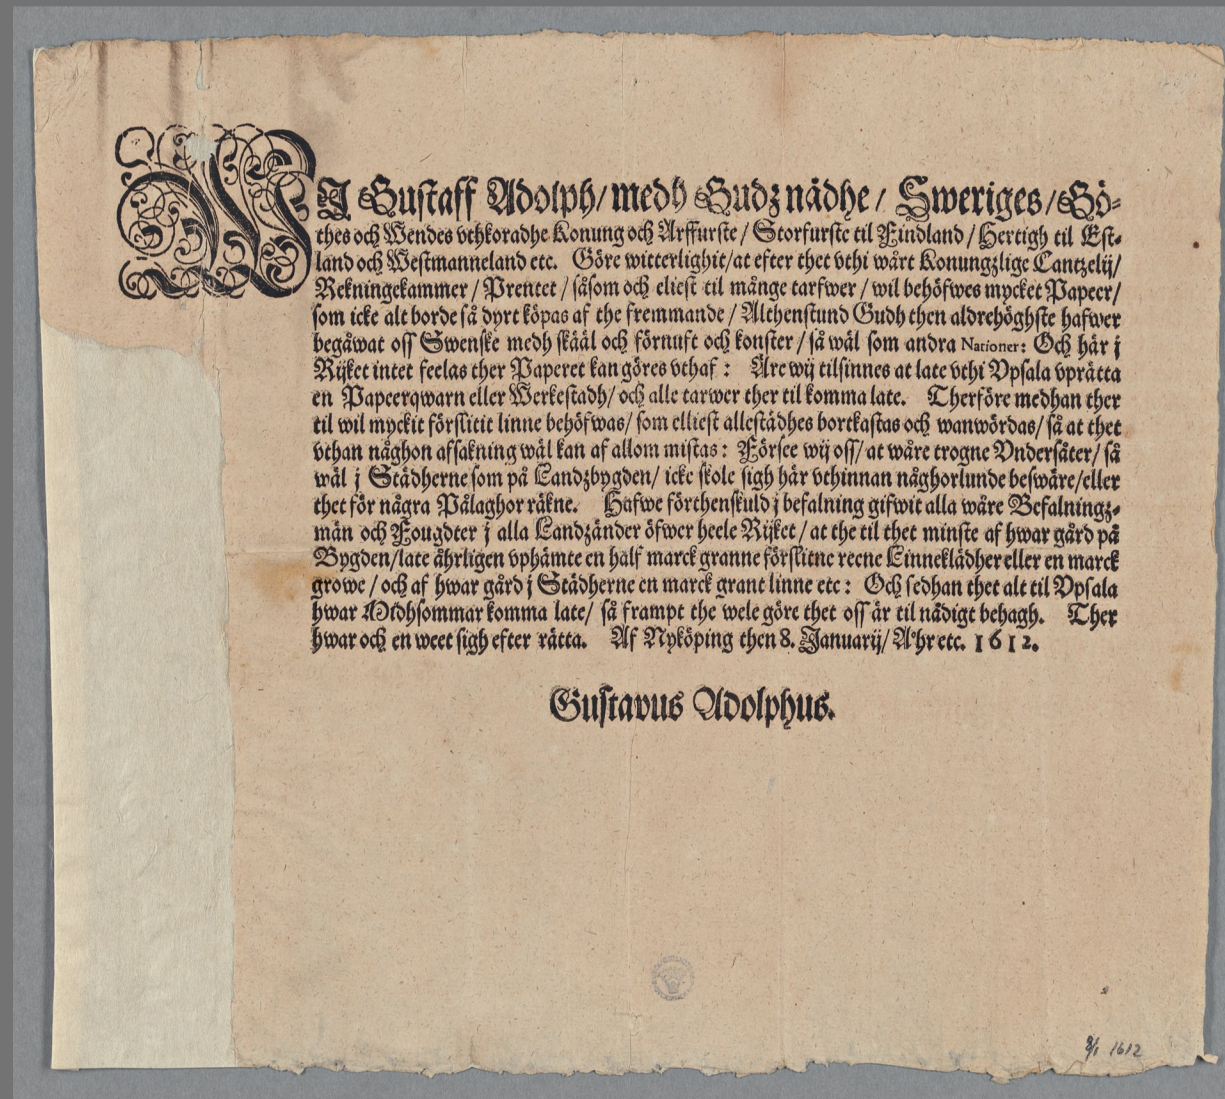 WJ Gustaff Adolph/ medh Gudz nådhe/ Sweriges/ Gö-
thes och Wendes vthkoradhe Konung och Arffurste/ Storfurste til Findland/ Hertigh til Est-
land och Westmanneland etc. Göre witterlighit/ at efter thet vthi wårt Konungzlige Cantzelij/
Rekningekammer/ Prentet/ såsom och eliest til månge tarfwer/ wil behöfwes mycket Papeer/
som icke alt borde så dyrt köpas af the fremmande/ Althenstund Gudh then aldrehöghste hafwer
begåwat oss Swenske medh skääl och förnuft och konster/ så wäl som andra Nationer: Och här j
Rijket intet feelas ther Paperet kan göres vthaf: Äre wij tilsinnes at late vthi Vpsala vprätta
en Papeerqwarn eller Werkestadh/ och alle tarwer ther til komma late. Therföre medhan ther
til wil myckit förslitit linne behöfwas/ som elliest allestädhes bortkastas och wanwördas/ så at thet
vthan någhon afsakning wäl kan af allom mistas: Försee wij oss/ at wåre trogne Vndersåter/ så
wäl j Städherne som på Landzbygden/ icke skole sigh här vthinnan någhorlunde beswäre/ eller
thet för några Pålaghor räkne. Hafwe förthenskuld j befalning gifwit alla wåre Befalningz-
män och Fougdter j alla Landzänder öfwer heele Rijket/ at the til thet minste af hwar gård på
Bygden/ late åhrligen vphämte en half marck granne förslitne reene Linneklädher eller en marck
growe/ och af hwar gård j Städherne en marck grant linne etc: Och sedhan thet alt til Vpsala
hwar Midhsommar komma late/ så frampt the wele göre thet oss är til nådigt behagh. Ther
hwar och en weet sigh efter rätta. Af Nyköping then 8. Januarij/ Åhr etc. 1612.
Gustavus Adolphus.
8/1 1612